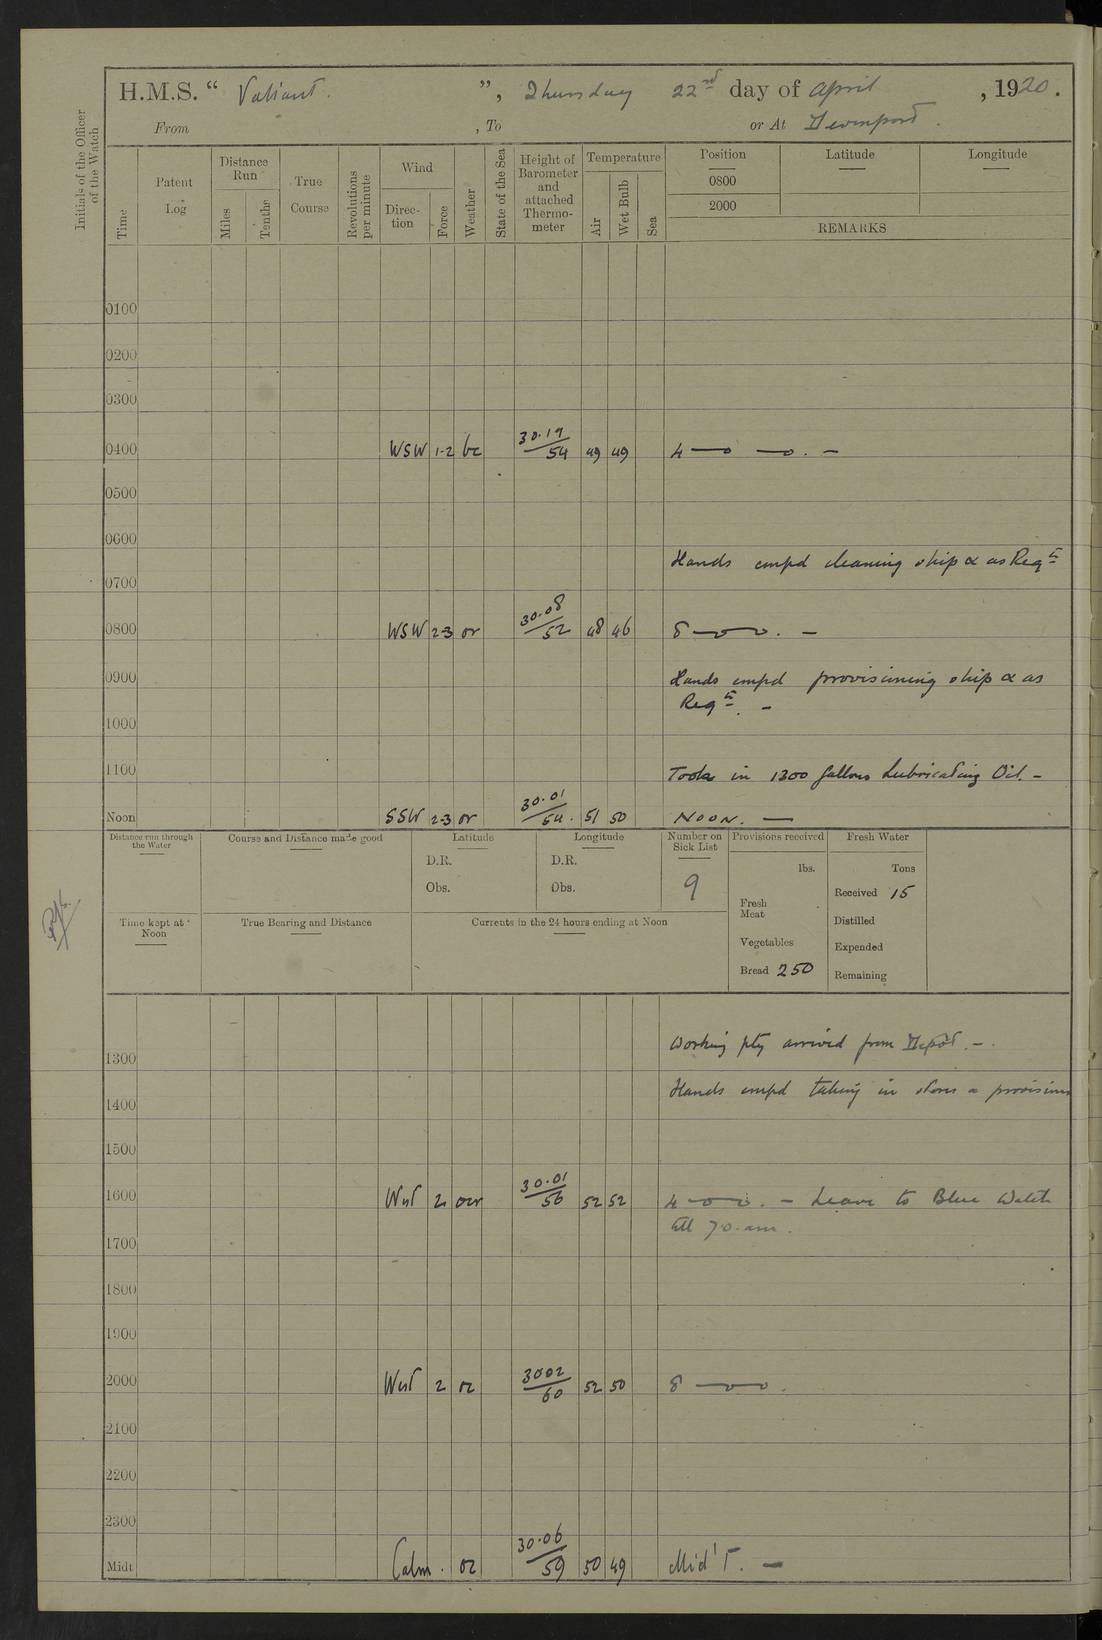 H.M.S. “ Valiant. ”, Thursday 22nd day of April , 1920.
From , To or At Devonport.
Initials of the Officer of the Watch
Time
Patent Log
Distance Run
Miles
Tenths
True Course
Revolutions per minute
Wind
Direction
Force
Weather
State of the Sea
Height of Barometer and attached Thermometer
Temperature
Air
Wet Bulb
Sea
Position Latitude Longitude
0800
2000
REMARKS
0100
0200
0300
0400 WSW 1-2 bc 30.19/54 49 49 4
0500
0600
Hands empd cleaning ship & as Reqte
0700
0800 WSW 2-3 or 30.08/52 48 46 8
0900 Hands empd provisioning ship & as
Reqte. –
1000
1100 Took in 1300 gallons Lubricating Oil. –
Noon SSW 2-3 or 30.01/54. 51 50 NOON. —
Distance run through the Water
Course and Distance made good
Latitude
D.R.
Obs.
Longitude
D.R.
Obs.
Number on Sick List
9
Provisions received
lbs.
Fresh Meat
Vegetables
Bread 250
Fresh Water
Tons
Received 15
Distilled
Expended
Remaining
Time kept at Noon
True Bearing and Distance
Currents in the 24 hours ending at Noon
Working pty arrived from Depôt. –
1300
Hands empd taking in stores & provisions
1400
1500
1600 West 2 30.01/56 52 52 4 – Leave to Blue Watch
till 7.0. am.
1700
1800
1900
2000 West 2 30.02/60 52 50 8
2100
2200
2300
Midt Calm. 30.06/59 50 49 Mid'T. —